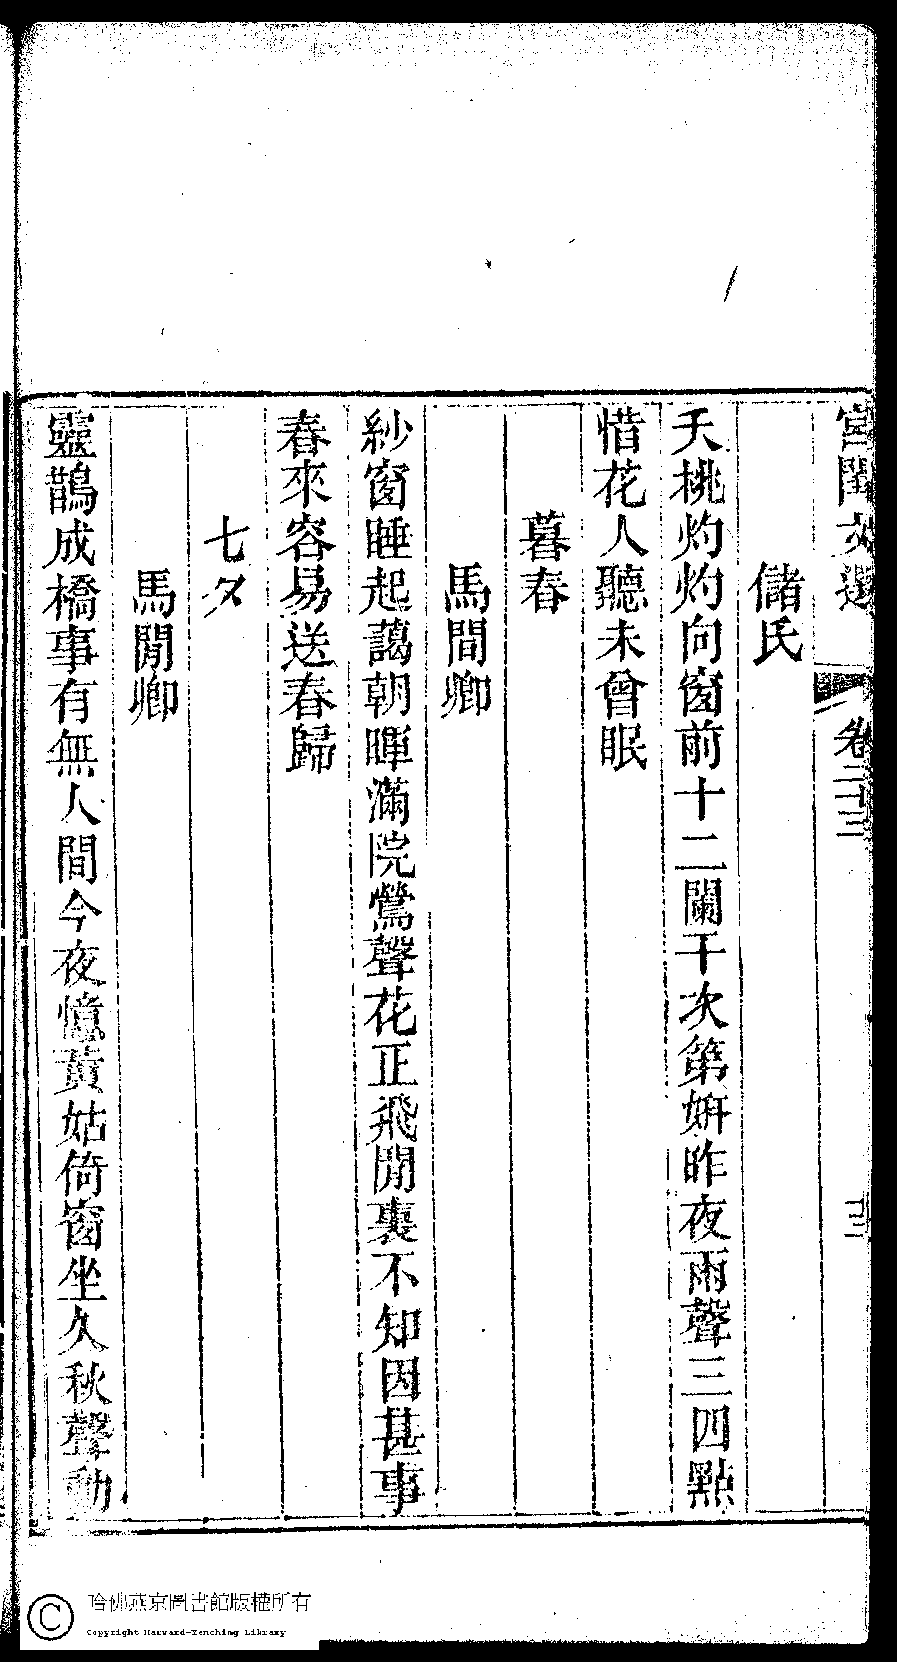 宮閨文選 卷二十三 三
儲氏
夭桃灼灼向窗前十二闌干次第妍昨夜雨聲三四點
惜花人聽未曾眠
暮春
馬間卿
紗窗睡起藹朝暉滿院鶯聲花正飛閒裏不知因甚事
春來容易送春歸
七夕
馬閒卿
靈鵲成橋事有無人間今夜憶黃姑倚窗坐久秋聲動
哈佛燕京圖書館版權所有
Copyright Harvard-Yenching Library